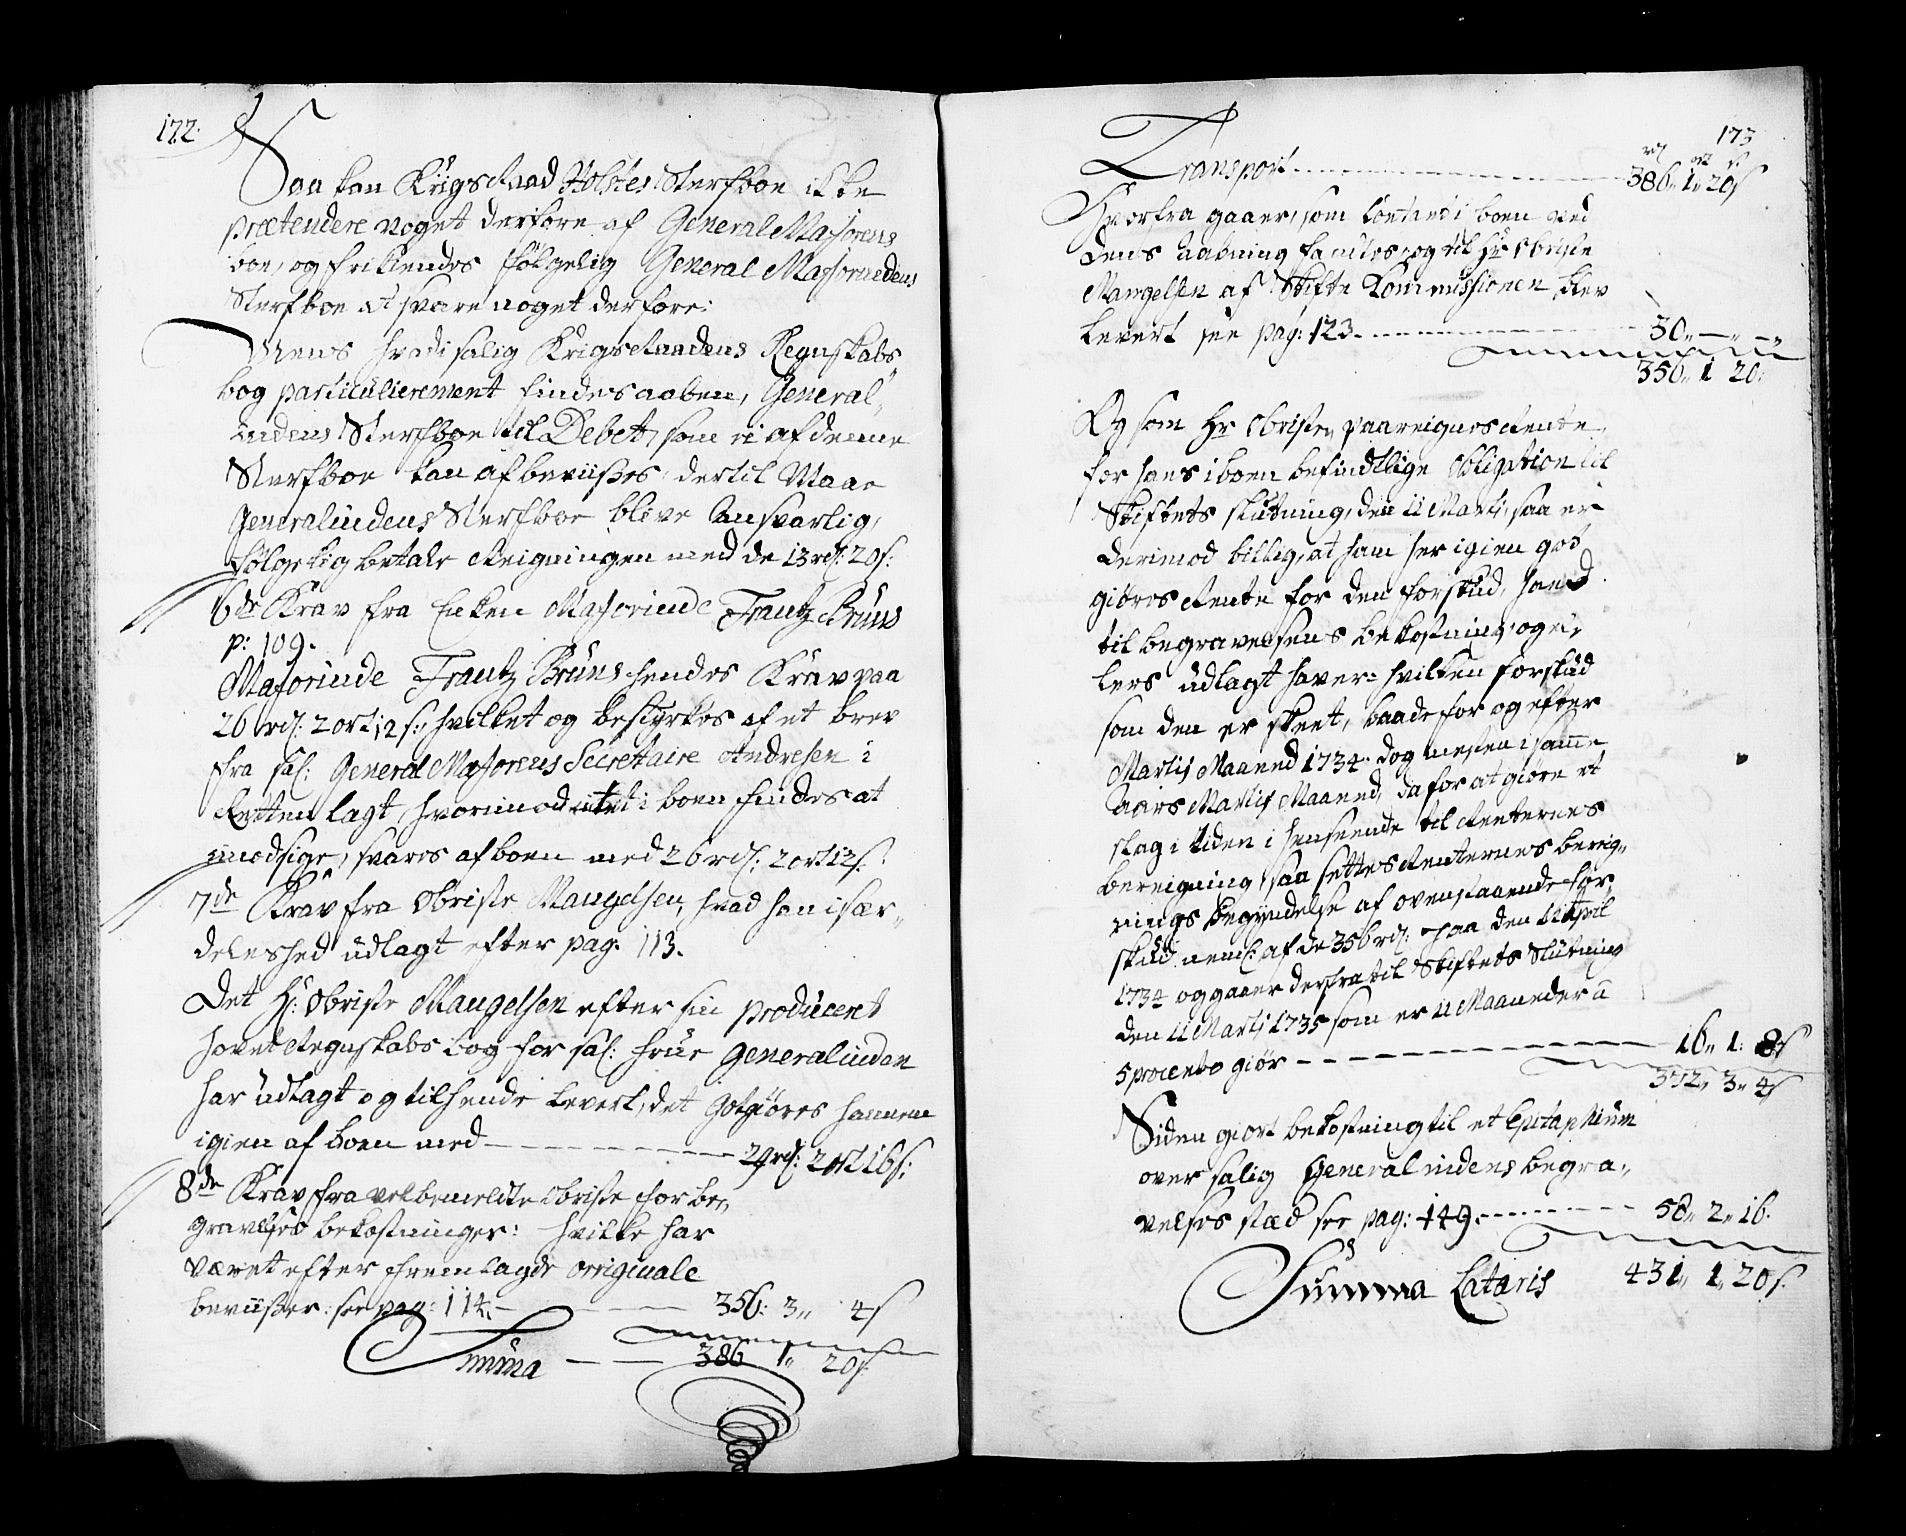 172.
Saa kan Krigs Raad Holstes Sterfboe ikke
prætendere noget derfore af General Majorens
boe, og frikiendes følgelig General Majorindens
Sterfboe at svare noget derfore:
Mens hvad i salig Krigs Raadens Regnskabs„
bog particulierement findes aaben, General„
indens Sterfboe til Debet, som ei af denne
Sterfboe kan afbeviises, dertil Maae
Generalindens Sterfboe blive Ansvarlig,
følgelig betale Reigningen med de 13 rd: 20 s:
6de Krav fra Enken Majorinde Frantz Bruns
p: 109.
Majorinde Frantz Bruns hendes Krav paa
26 rd: 2 ort 12 s: hvilket og bestyrkes af et brev
fra sal: General Majorens Secretaire Andresen i
Retten lagt, hvorimod intet i boen findes at
imodsige, svares af boen med 26 rd: 2 ort 12 s:
7de Krav fra Obriste Mangelsen, hvad han især„
deleshed udlagt efter pag. 113.
Det Hr: Obriste Mangelsen efter sin producert
hovet Regnskabs bog for sal: frue Generalinden
har udlagt og til hende levert, det Gotgiøres hannem
igien af boen med - - - 29 rd: 2 ort 16 s:
8de Krav fra velbemeldte Obriste for be„
gravelses bekostninger: hvilke har
været efter fremlagde originale
beviiser: see pag: 114. - - - 356: 3„ 4 s
Summa - - - 386 1„ 20 s.
173
Transport - - - rd ort s.
386„ 1„ 20 s
Hvorfra gaaer, som Contant i boen ved
dens Aabning fandtes, og til Hr Obriste
Mangelsen af Skifte Commissionen blev
levert see pag: 123. - - - 30„ — „ —„
356„ 1 20.
Og som Hr Obristen paareignes Rente
for hans i boen befindtlige Obligation til
Skiftets slutning, den 11 Marti, saa er
derimod billig, at ham her igien god
giøres Rente for den forskud, hand
til begravelsens bekostning og ei„
lers udlagt haver: hvilken forskud
som den er skeet, baade for og efter
Martij Maaned 1734. dog mesten i samme
Aars Martij Maaned, da for at giøre et
slag i tiden i henseende til Renternes
bereigning, saa settes Renternes bereig„
nings begyndelse af ovenstaaende for„
skud neml: af de 356 rd: paa den 11 April
1734 og gaaer derfra til Skiftets Slutning
den 11 Martij 1735 som er 11 Maaneder a
5 procento giør - - - 16„ 1: 8 s
372„ 3„ 4 s
Siden giort bekostning til et Epitaphium
over salig Generalindens begra„
velses stæd see pag: 149. - - - 58„ 2„ 16.
Summa Lataris 431„ 1„ 20 s.